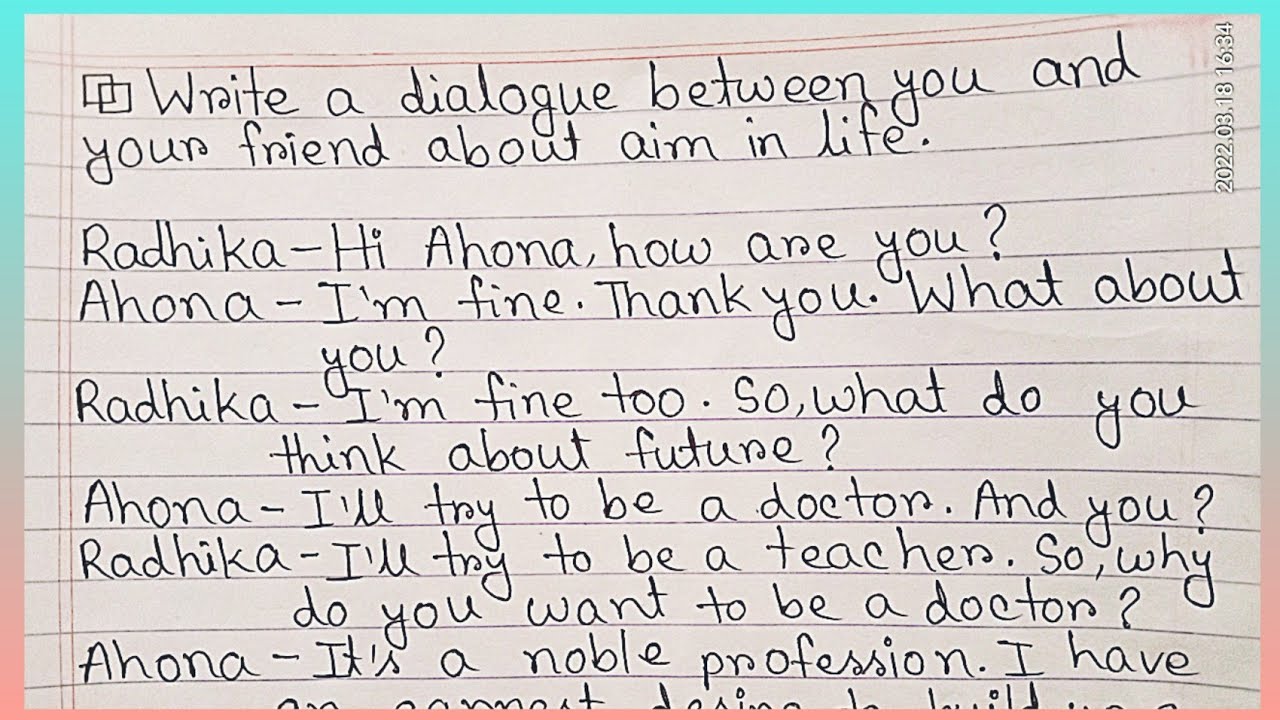 Write a dialogue between you and
your friend about aim in life.
Radhika - Hi Ahona, how are you?
Ahona - I'm fine. Thank you. What about
you?
Radhika - I'm fine too. So, what do you
think about future?
Ahona - I'll try to be a doctor. And you?
Radhika - I'll try to be a teacher. So, why
do you want to be a doctor?
Ahona - It's a noble profession. I have
an earnest desire to build up a
2022.03.18 16:34